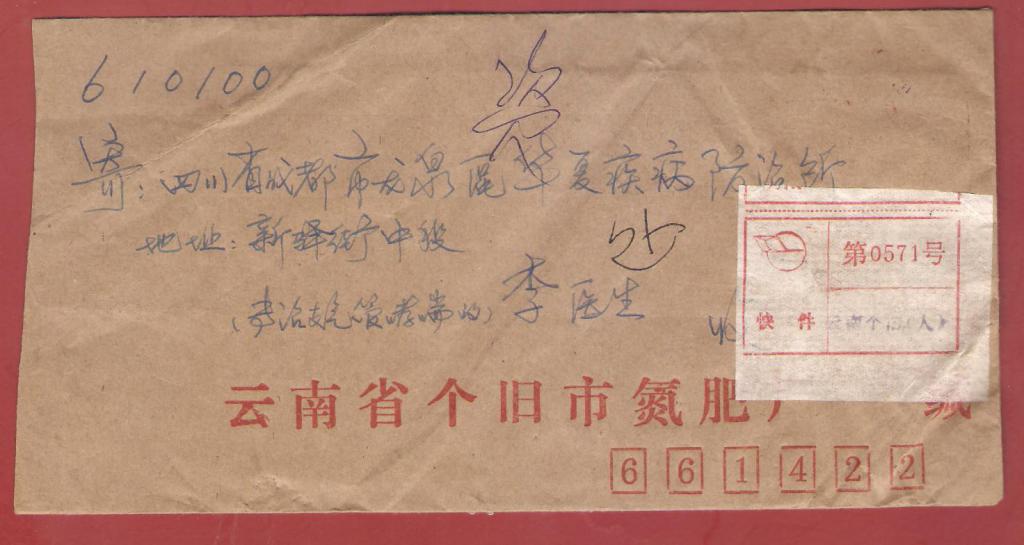 610100
寄：四川省成都市龙泉区华夏疾病防治所
地址：新驿街中段
(专治支气管哮喘的) 李医生
收
第0571号
快件 云南个旧(人)
云南省个旧市氮肥厂 缄
661422